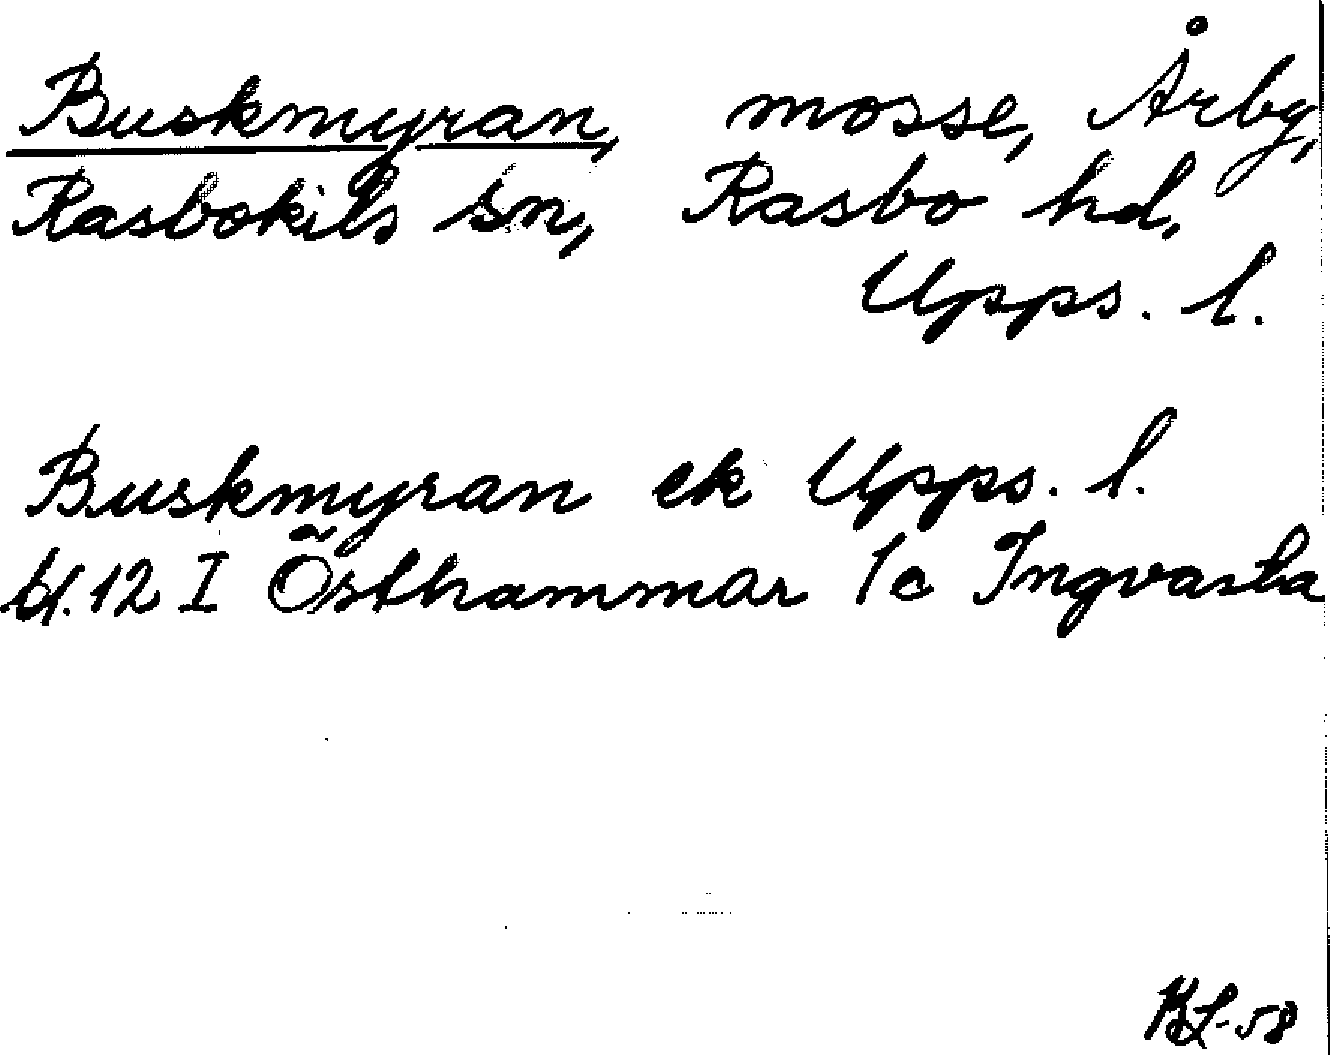 Buskmyran, mosse, Årby,
Rasbokils sn, Rasbo hd,
Upps. l.
Buskmyran ek Upps. l.
bl. 12 I Östhammar 1c Ingvasta
KL-58